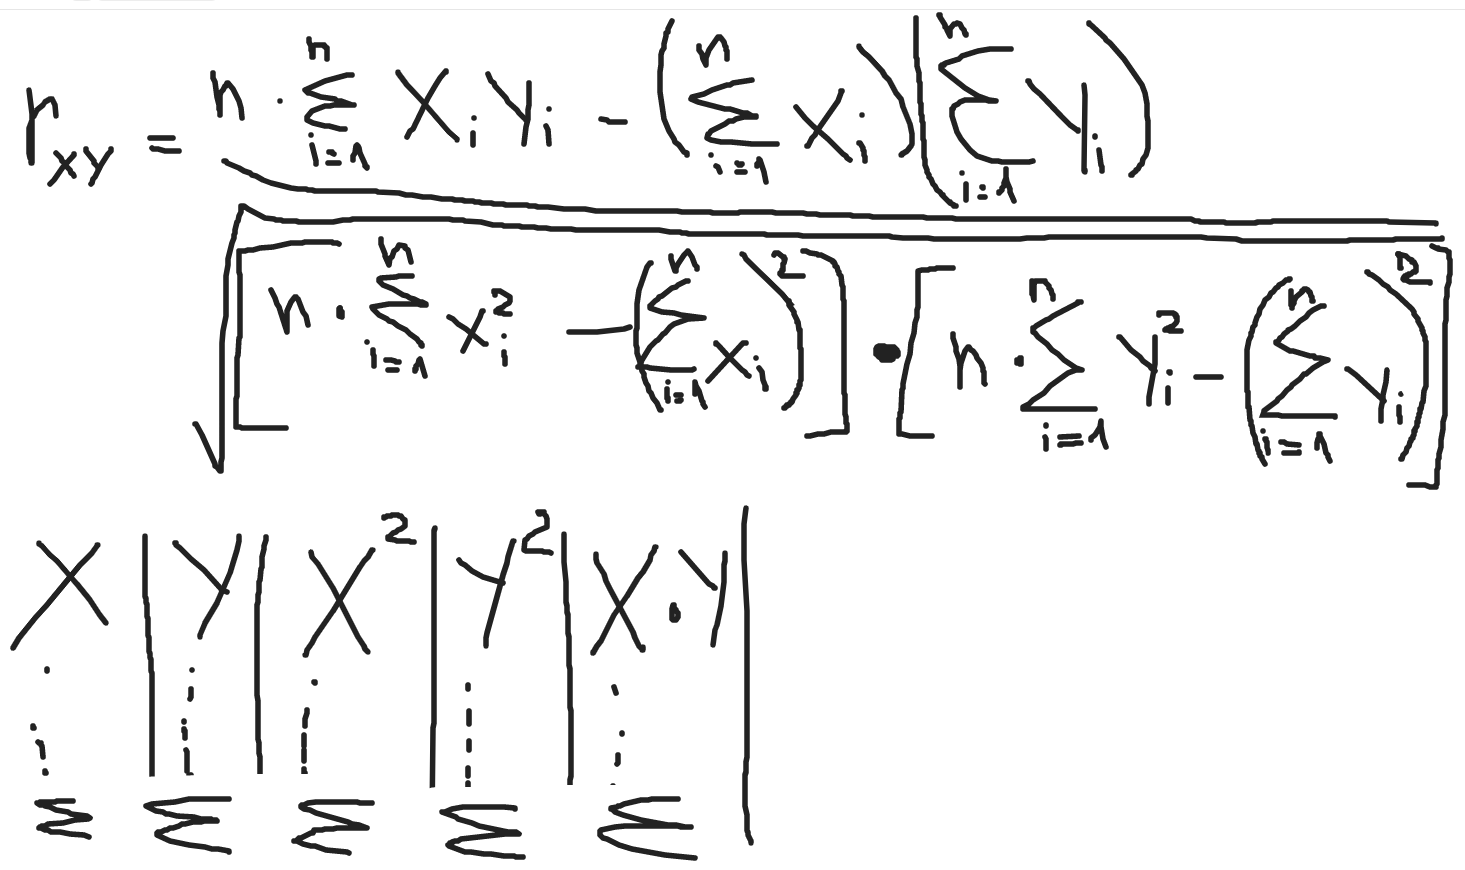 r_xy = n · Σ_{i=1}^{n} X_i Y_i − (Σ_{i=1}^{n} X_i)(Σ_{i=1}^{n} Y_i)
√[n · Σ_{i=1}^{n} X_i² − (Σ_{i=1}^{n} X_i)²] · [n · Σ_{i=1}^{n} Y_i² − (Σ_{i=1}^{n} Y_i)²]
X | Y | X² | Y² | X · Y |
Σ Σ Σ Σ Σ